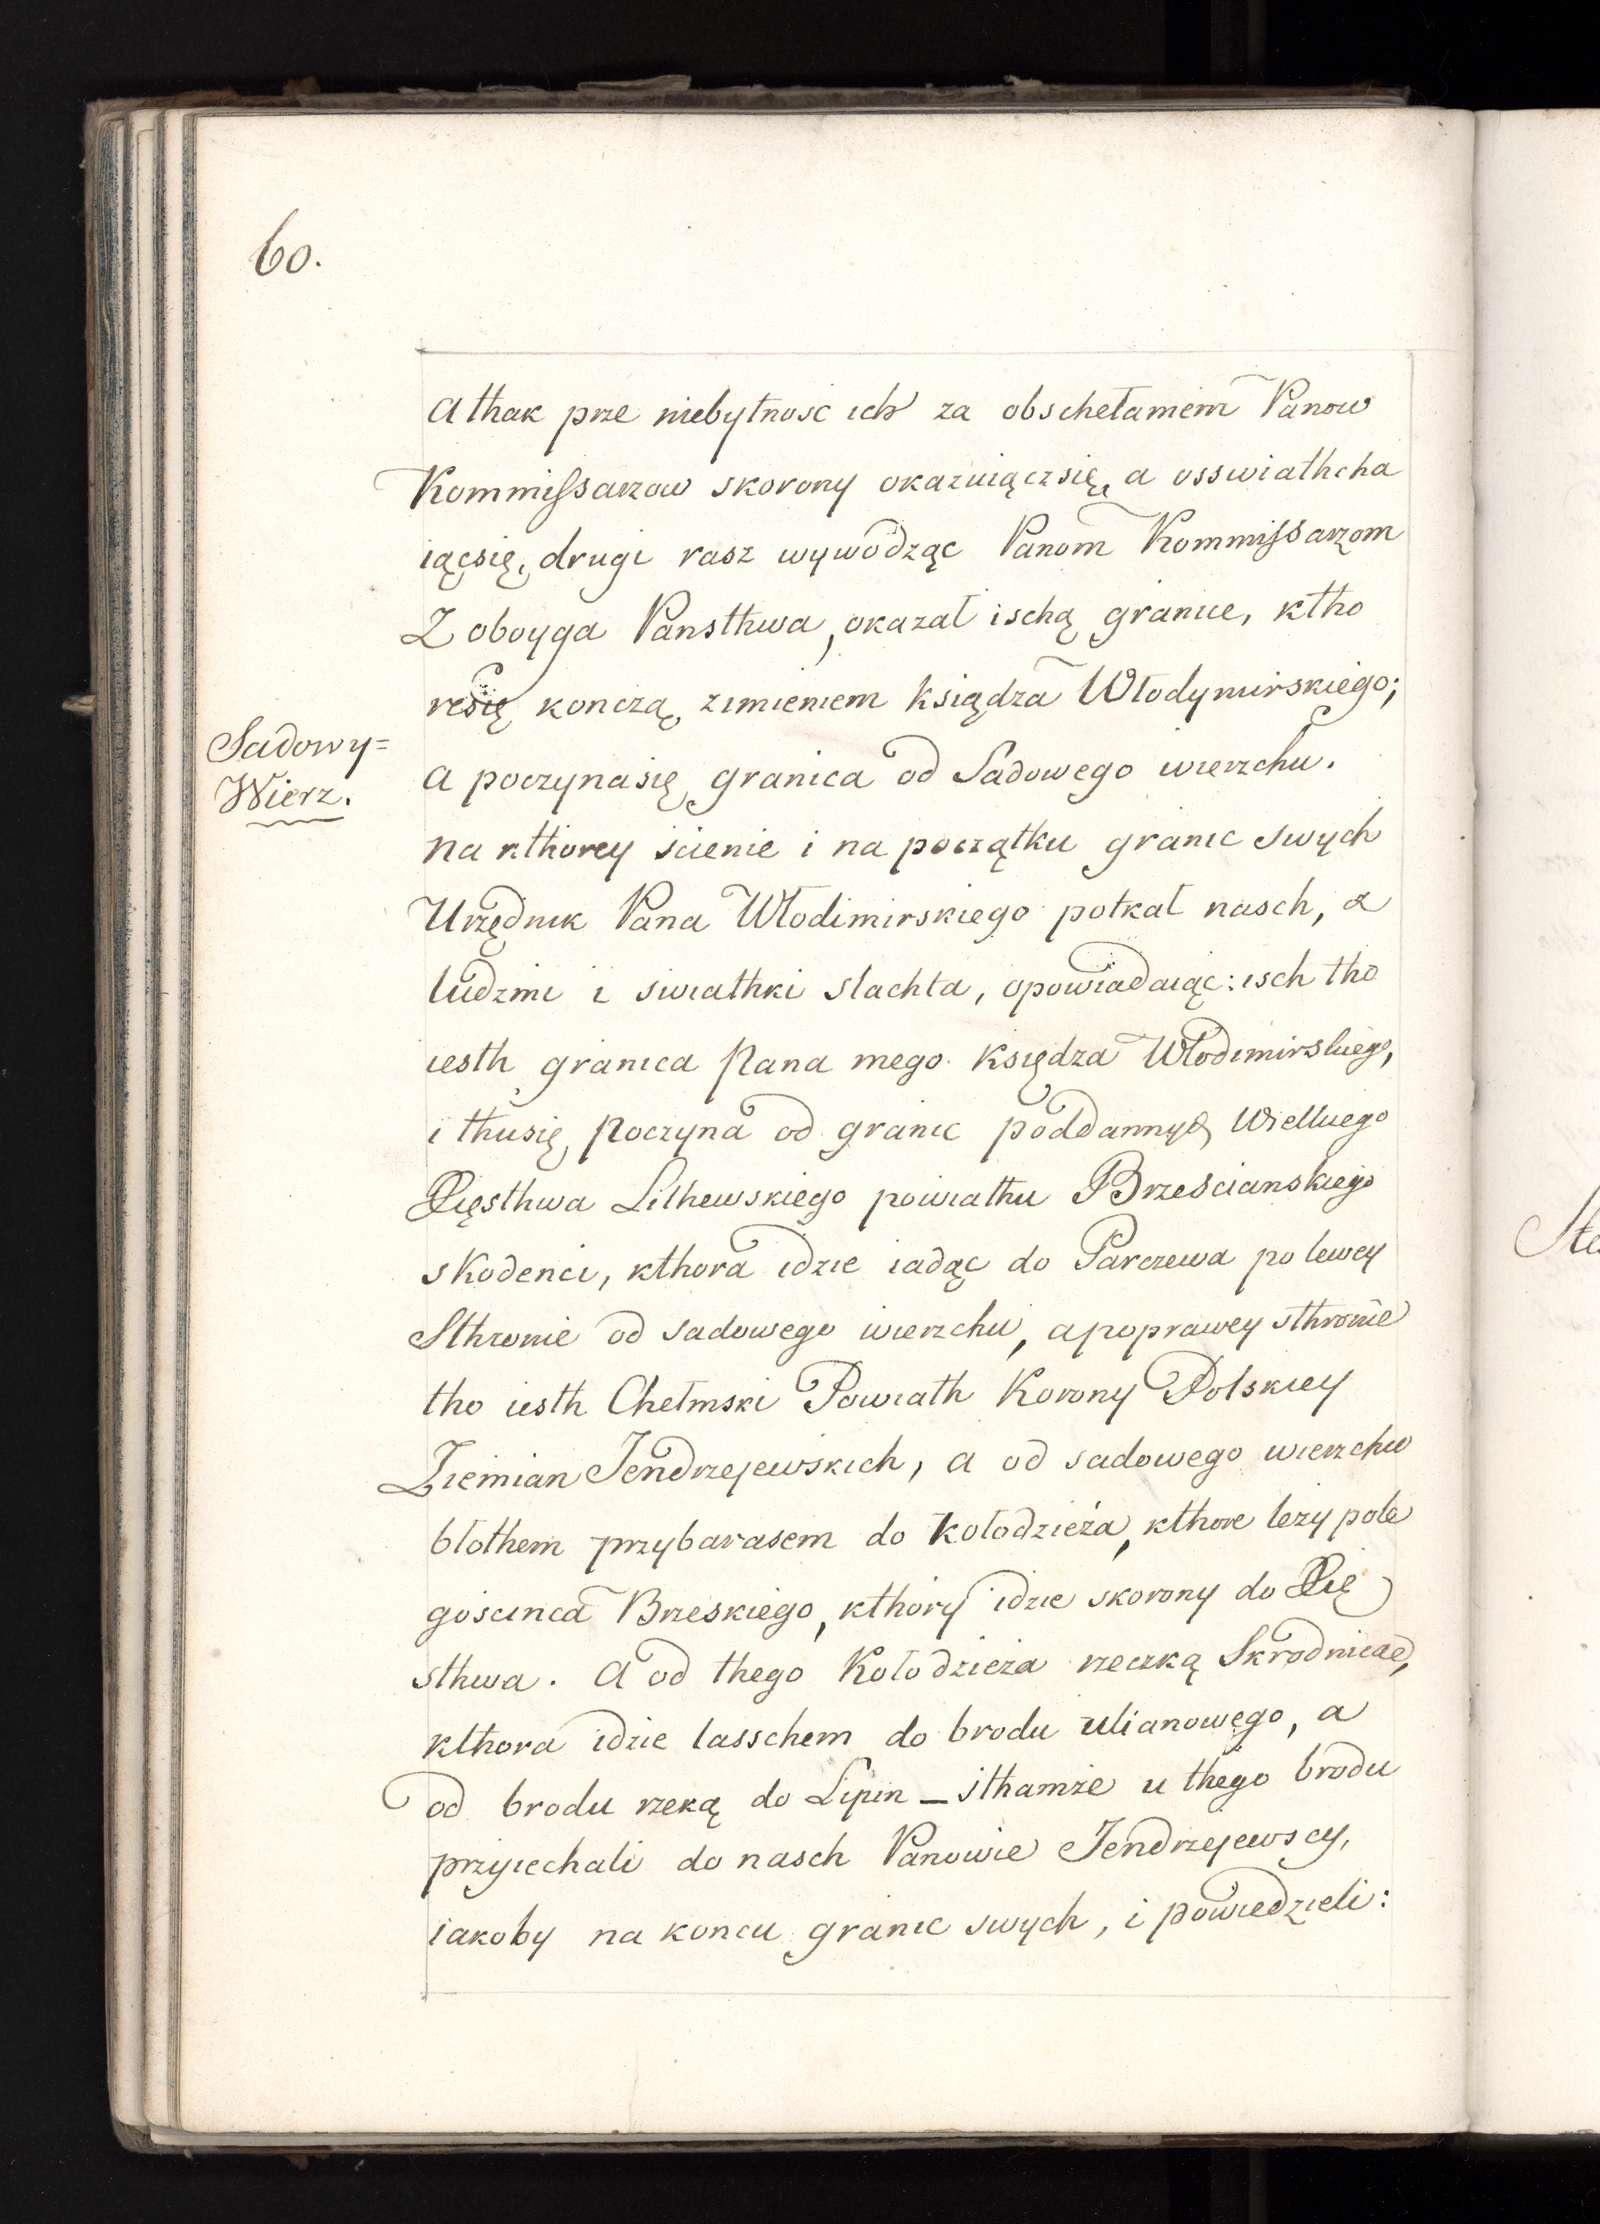 60.
Athak prze niebytnosc ich za obschełaniem Panow
Kommissarzow skorony okazuiączsię, a osswiathcha
iącsię, drugi rasz wywodząc Panom Kommissarzom
Z oboyga Pansthwa, okazał ischą granice, ktho
resię konczą zimieniem księdza Włodymirskiego;
Sadowy=
Wierz.
a poczynasię granica od Sadowego wierzchu.
na kthorey scienie i na początku granic swych
Urzędnik Pana Włodimirskiego potkał nasch, z
ludzmi i swiathki slachta, opowiadaiąc: isch tho
iesth granica Pana mego księdza Włodimirskiego,
i thusię poczyna od granic poddannych Wielkiego
Xięsthwa Lithewskiego powiathu Brzescianskiego
skodenci, kthora idzie iadąc do Parczewa po lewey
Sthronie od sadowego wierzchu, apoprawey sthronie
tho iesth Chełmski Powiath Korony Polskiey
Ziemian Jendrzejewskich, a od sadowego wierzchu
błothem przybarasem do kołodzieża, kthore leży pole
goscinca Brzeskiego, kthory idzie skorony do Xię
sthwa. A od thego Kołodzieża rzeczką Skrodnicae,
kthora idzie lasschem do brodu ulianowego, a
od brodu rzeką do Lipin _ ithamże u thego brodu
przyiechali do nasch Panowie Jendrzejewscy,
iakoby na koncu granic swych, i powiedzieli: